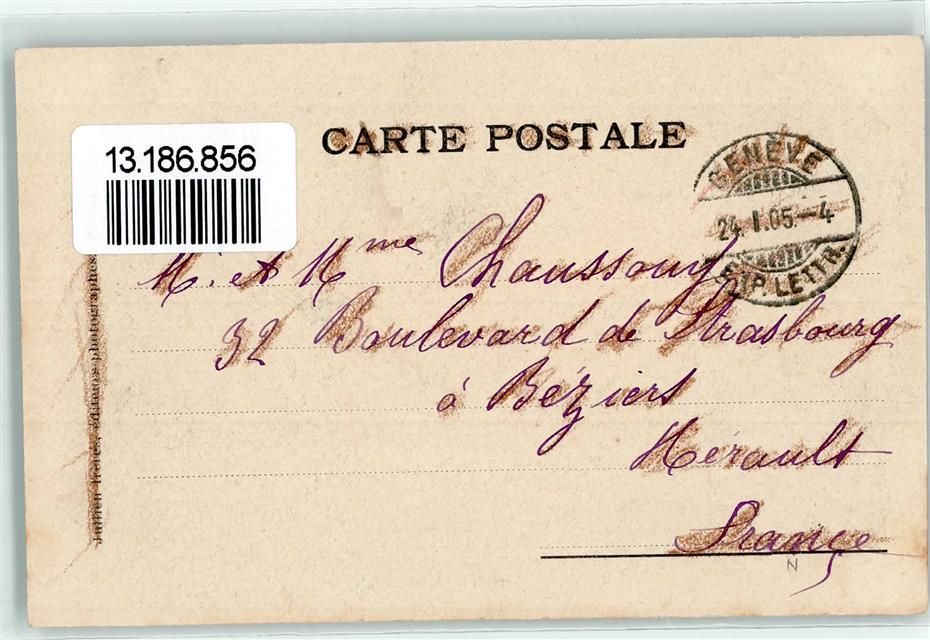 CARTE POSTALE
13.186.856
GENÈVE
24. I. 05.–4
EXP. LETTR.
M. et Mme Chaussouy
32 Boulevard de Strasbourg
à Béziers
Hérault
France
N
Jullien frères, éditeurs photographes